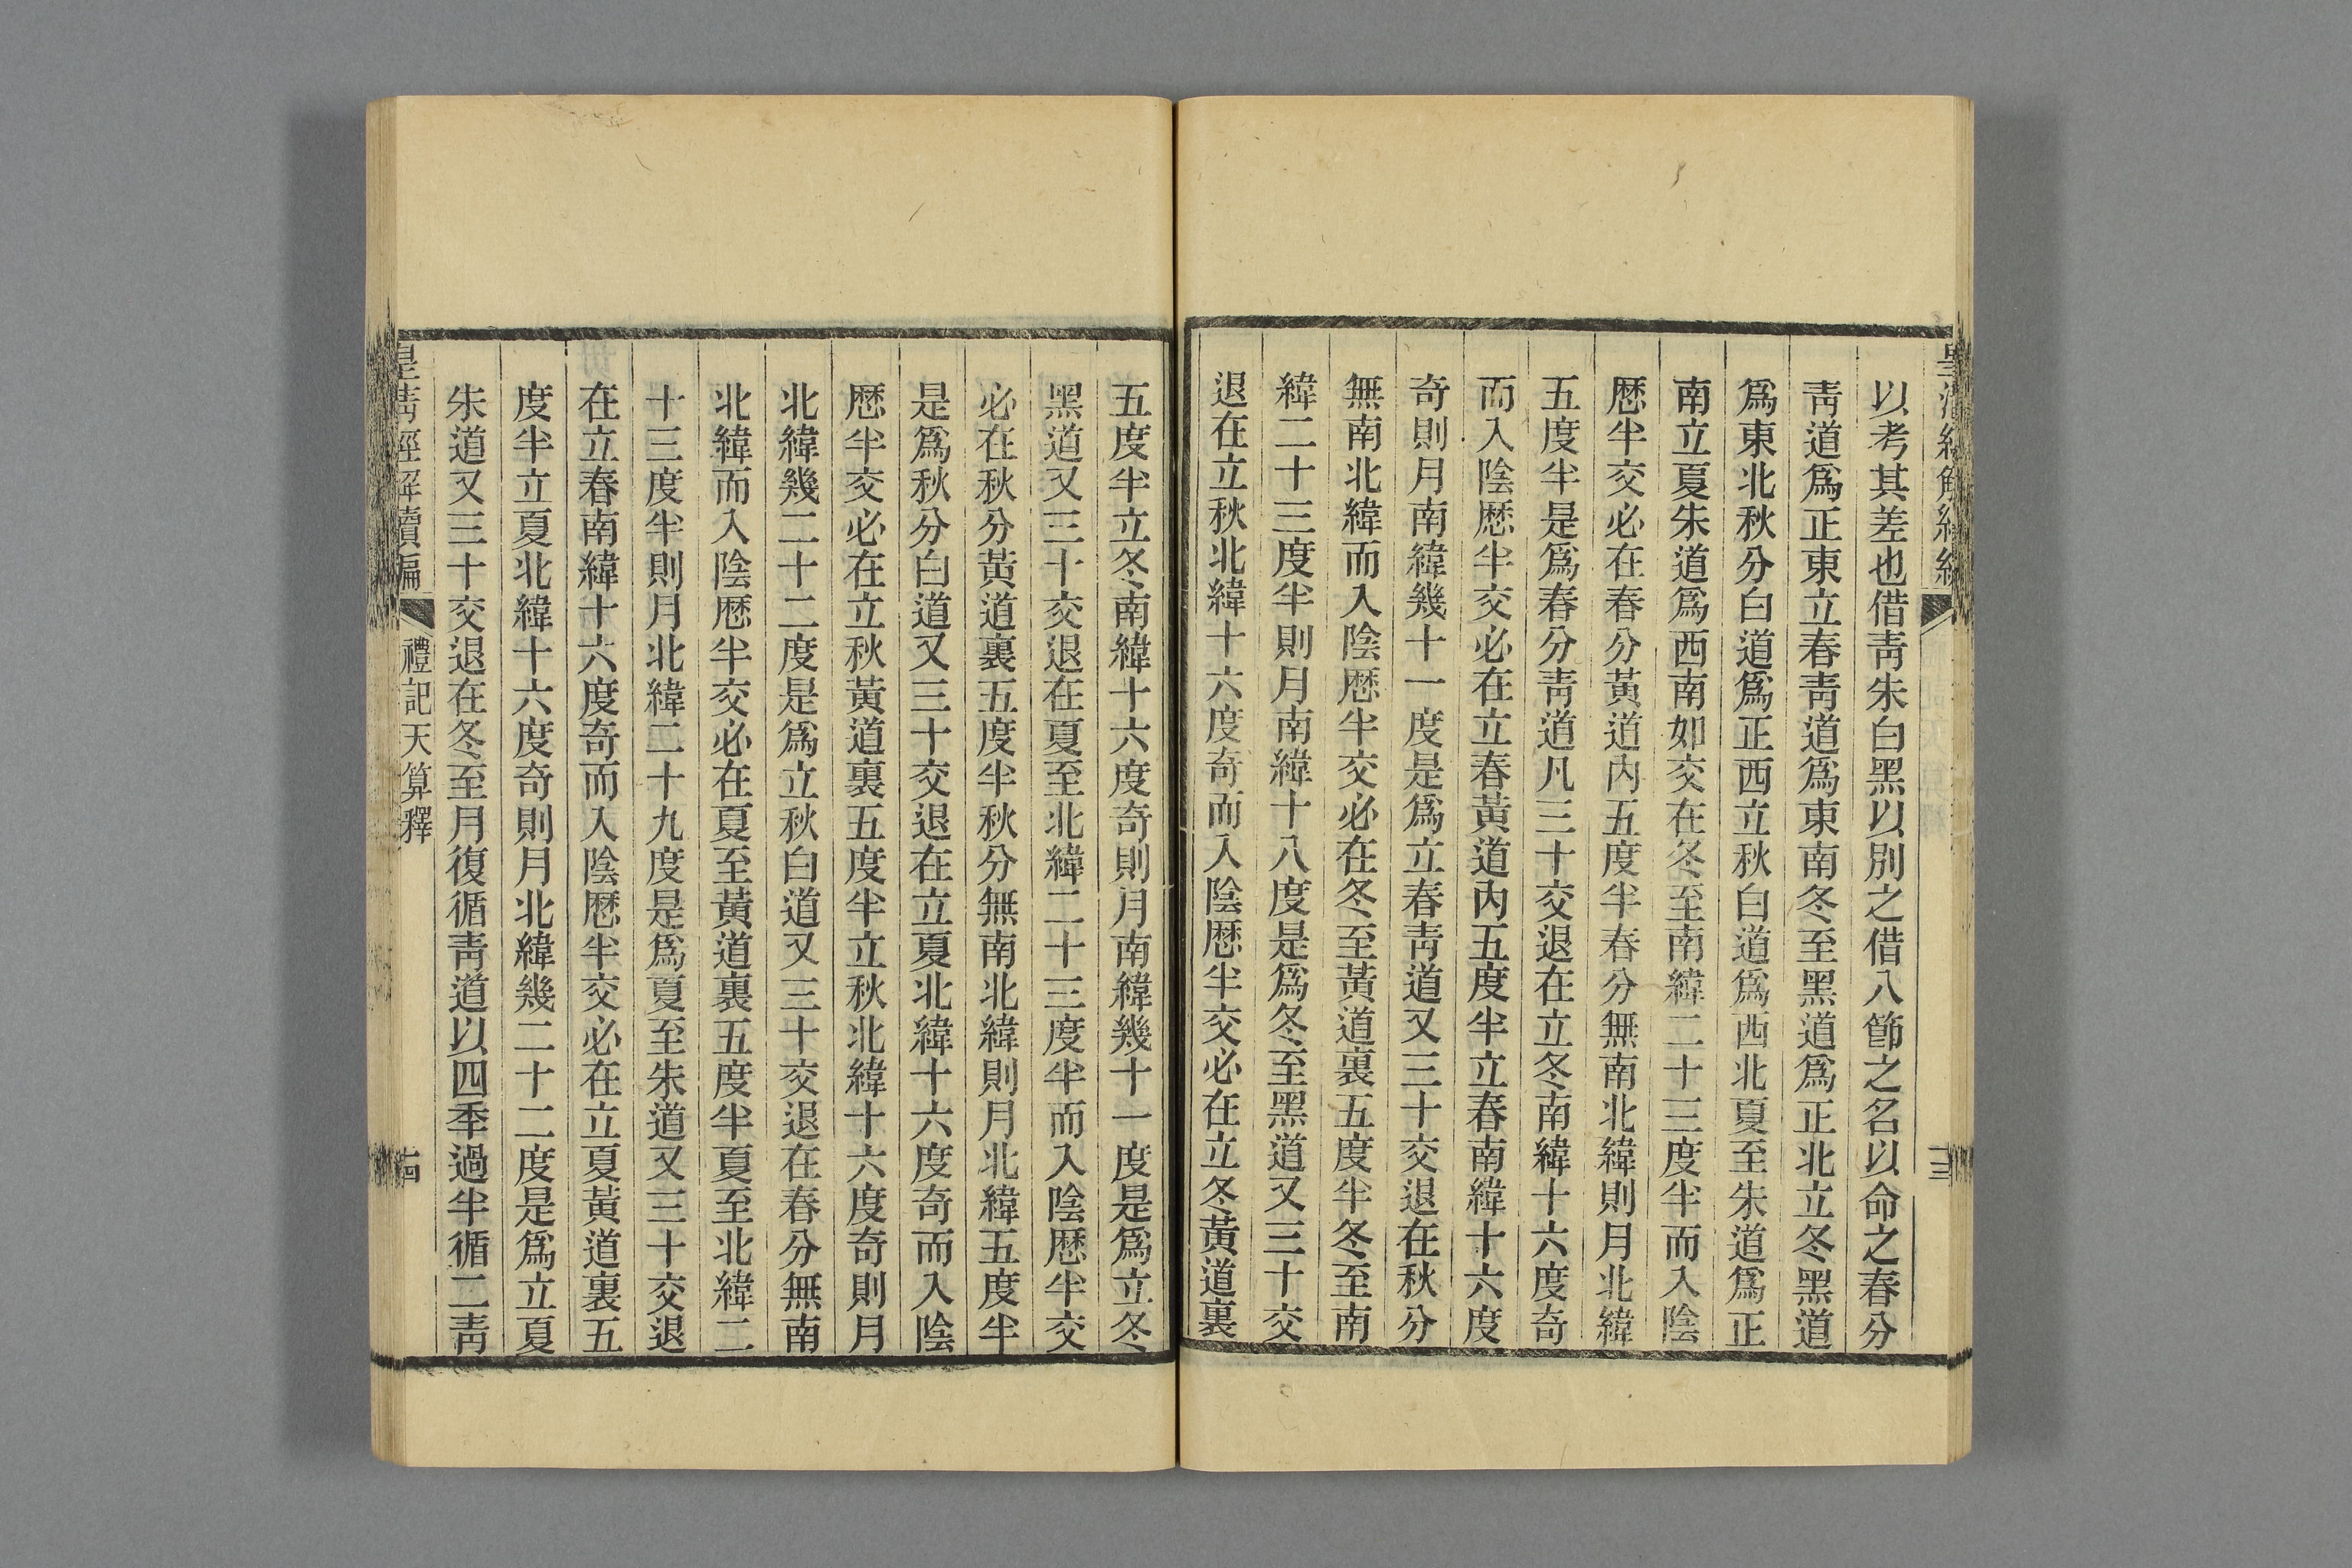 以考其差也借靑朱白黑以別之借八節之名以命之春分
靑道爲正東立春靑道爲東南冬至黑道爲正北立冬黑道
爲東北秋分白道爲正西立秋白道爲西北夏至朱道爲正
南立夏朱道爲西南如交在冬至南緯二十三度半而入陰
厯半交必在春分黃道內五度半春分無南北緯則月北緯
五度半是爲春分靑道凡三十交退在立冬南緯十六度奇
而入陰厯半交必在立春黃道內五度半立春南緯十六度
奇則月南緯幾十一度是爲立春靑道又三十交退在秋分
無南北緯而入陰厯半交必在冬至黃道裏五度半冬至南
緯二十三度半則月南緯十八度是爲冬至黑道又三十交
退在立秋北緯十六度奇而入陰厯半交必在立冬黃道裏
五度半立冬南緯十六度奇則月南緯幾十一度是爲立冬
黑道又三十交退在夏至北緯二十三度半而入陰厯半交
必在秋分黃道裏五度半秋分無南北緯則月北緯五度半
是爲秋分白道又三十交退在立夏北緯十六度奇而入陰
厯半交必在立秋黃道裏五度半立秋北緯十六度奇則月
北緯幾二十二度是爲立秋白道又三十交退在春分無南
北緯而入陰厯半交必在夏至黃道裏五度半夏至北緯二
十三度半則月北緯二十九度是爲夏至朱道又三十交退
在立春南緯十六度奇而入陰厯半交必在立夏黃道裏五
度半立夏北緯十六度奇則月北緯幾二十二度是爲立夏
朱道又三十交退在冬至月復循靑道以四季過半循二靑
皇淸經解續編
禮記天算釋
十四